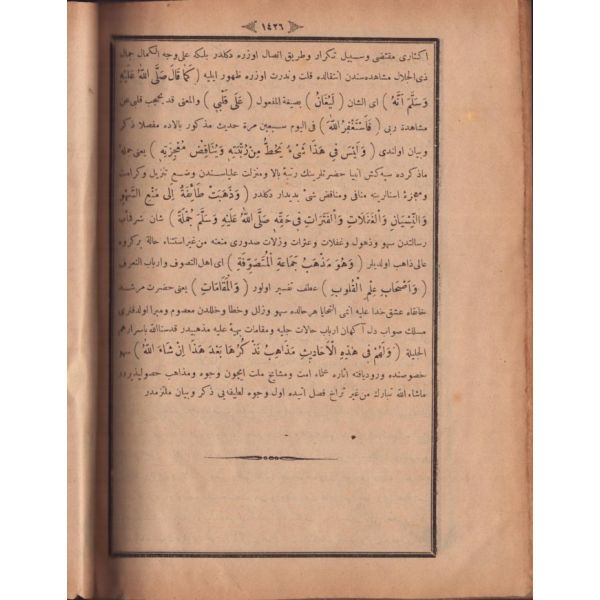 ١٤٢٦
اكثارى مقتضى وسبيل تكرار وطريق اتصال اوزره دكلدر بلكه على وجه الكمال جمال
ذى الجلال مشاهده سندن انتقالده قلت وندرت اوزره ظهور ايليه ( كَمَا قَالَ صَلَّى اللهُ عَلَيْهِ
وَسَلَّمَ اَنَّهُ ) اى الشان ( لَيُغَانُ ) بصيغة المفعول ( عَلَى قَلْبِي ) والمعنى قد يحجب قلبى عن
مشاهدة ربى ( فَاَسْتَغْفِرُ اللهَ ) فى اليوم سبعين مرة حديث مذكور بالاده مفصلا ذكر
وبيان اولندى ( وَلَيْسَ فِي هَذَا شَيْءٌ يَحُطُّ مِنْ رُتْبَتِهِ وَيُنَاقِضُ مُعْجِزَتِهِ ) يعنى جملۀ
ماذكرده سبه كش انبيا حضرتلرينك رتبۀ بالا ومنزلت علياسندن وضع تنزيل وكرامت
ومعجزۀ اسنالرينه منافى ومناقض شىء پديدار دكلدر ( وَذَهَبَتْ طَائِفَةٌ اِلَى مَنْعِ السَّهْوِ
وَالنِّسْيَانِ وَالْغَفَلَاتِ وَالْفَتَرَاتِ فِي حَقِّهِ صَلَّى اللهُ عَلَيْهِ وَسَلَّمَ جُمْلَةً ) شان شرفياب
رسالتدن سهو وذهول وغفلات وعثرات وزلات صدورى منعنه من غير استثناء حالة بر كروه
عالى ذاهب اولديلر ( وَهُوَ مَذْهَبُ جَمَاعَةِ الْمُتَصَوِّفَةِ ) اى اهل التصوف وارباب التعرف
( وَاَصْحَابِ عِلْمِ الْقُلُوبِ ) عطف تفسير اولور ( وَالْمَقَامَاتِ ) يعنى حضرت مرشد
خانقاه عشق خدا عليه انمى التحايا هر حالده سهو وزلل وخطا وخللدن معصوم ومبرا اولدقلرى
مسلك صواب دل آكهان ارباب حالات جليه ومقامات بهيۀ عليه مذهبيدر قدسنا الله باسرارهم
الجليلة ( وَلَهُمْ فِي هَذِهِ الْاَحَادِيثِ مَذَاهِبُ نَذْكُرُهَا بَعْدَ هَذَا اِنْ شَاءَ اللهُ ) سهو
خصوصنده ورود يافته آثاره علماء امت ومشايخ ملت ايچون وجوه ومذاهب حصوليذيردر
ماشاء الله تبارك من غير تراخ فصل آتيده اول وجوه لطيفه يى ذكر وبيان ملتزمدر